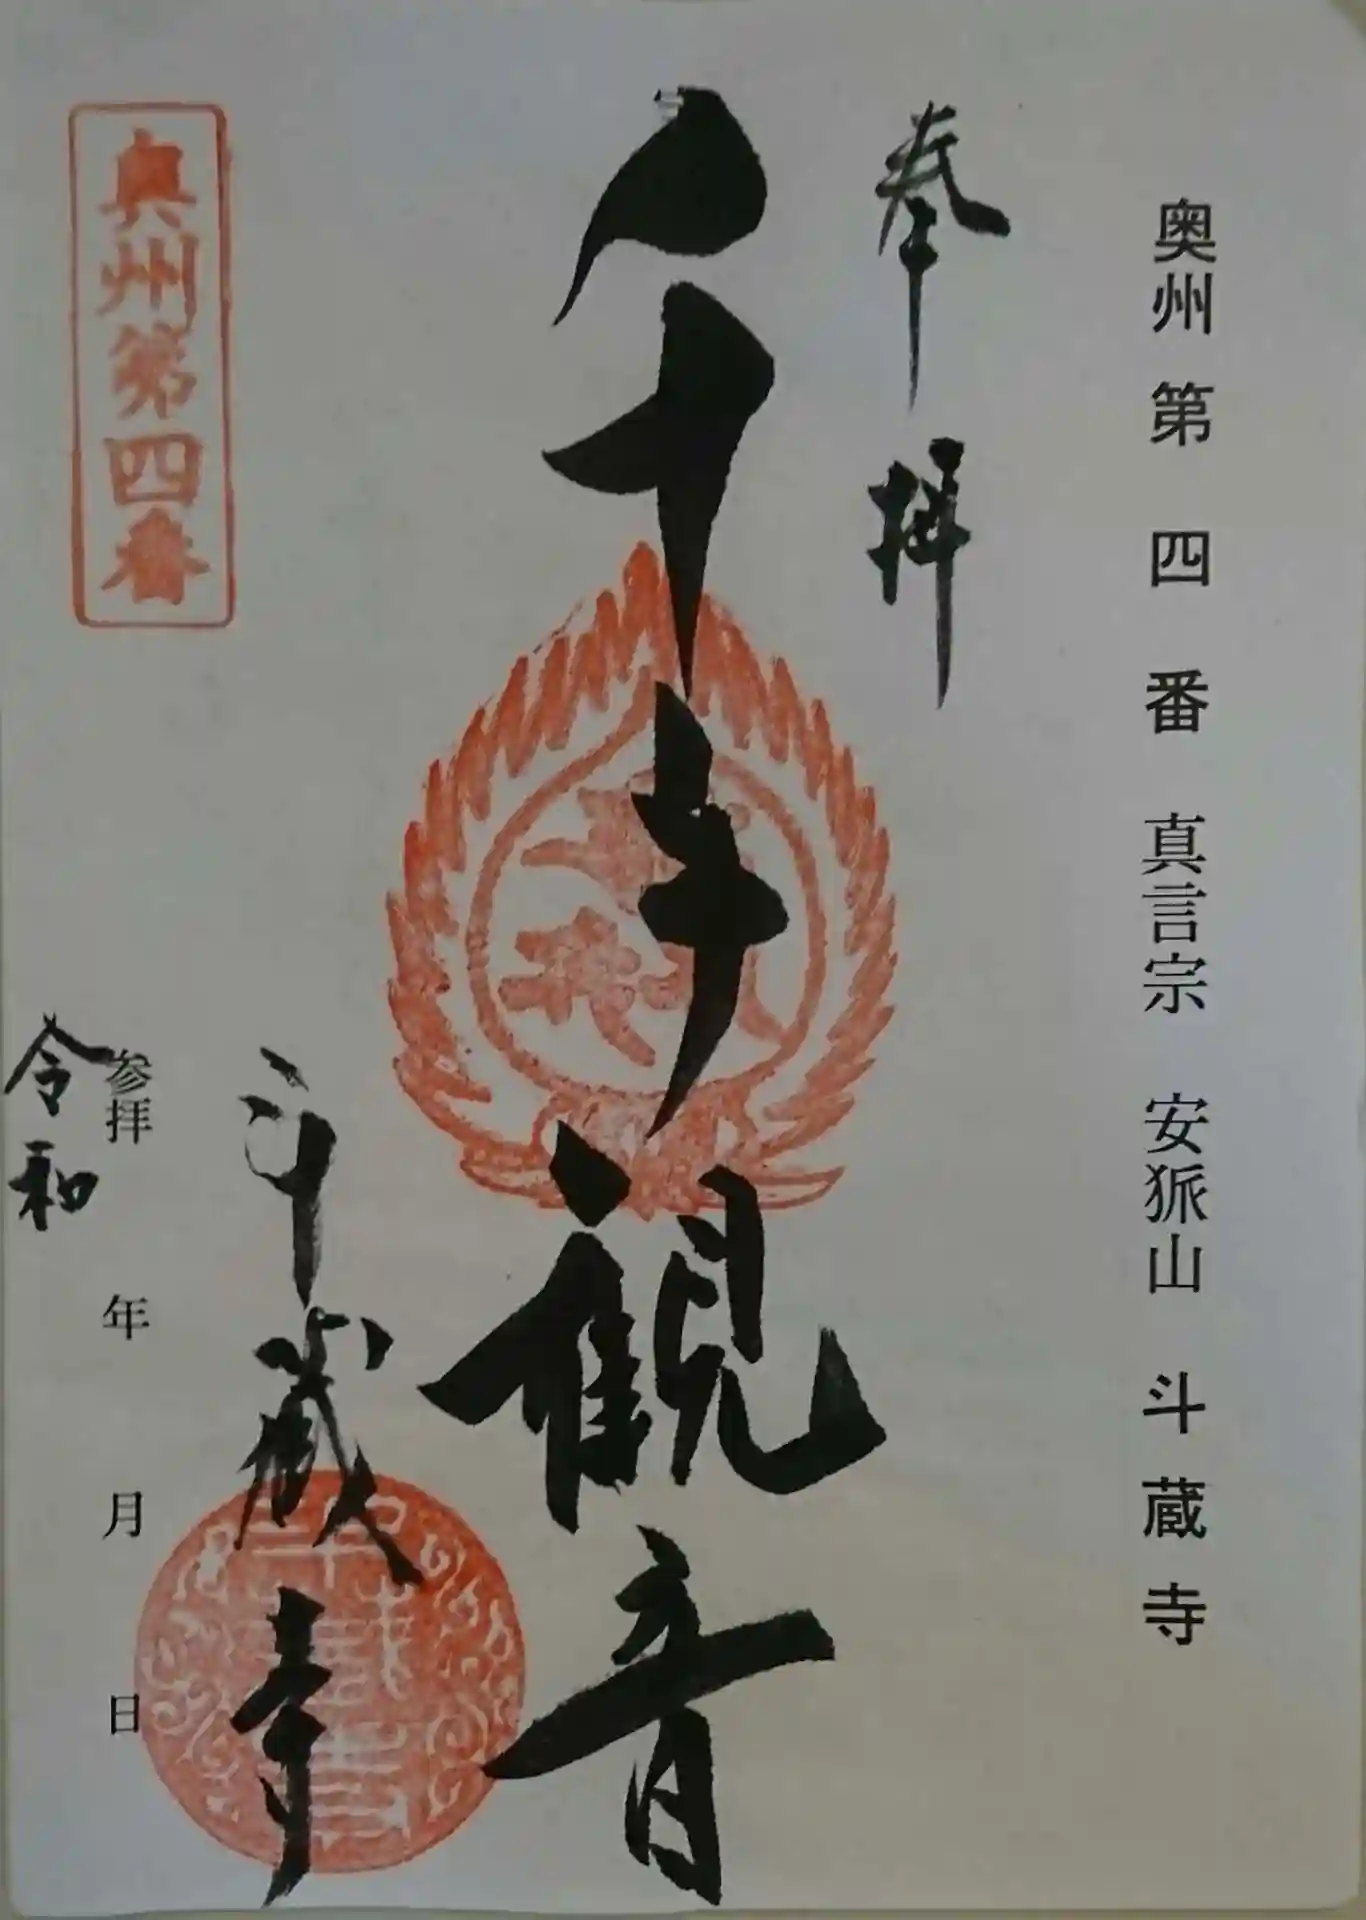 奥州第四番 真言宗 安狐山 斗蔵寺
奉拝
千手観音
斗蔵寺
参拝 年 月 日
令和
奥州第四番